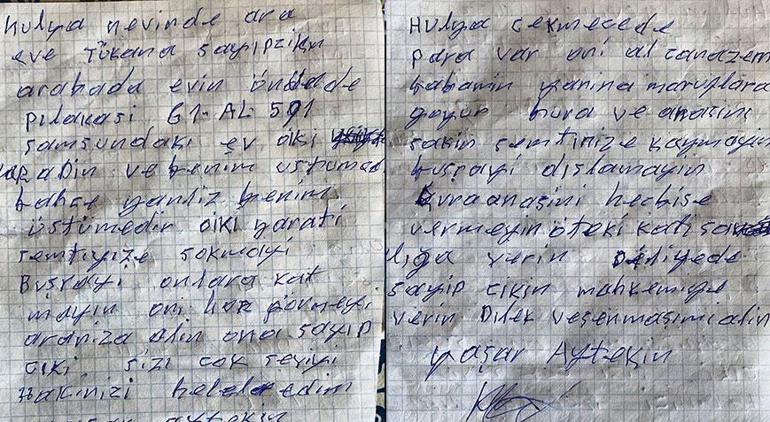 Hulya nevinde ara
eve Tükana sayıpzikin
arabada evin önünde
pılakasi 61-AL 591
samsundaki ev oiki
kapadin ve benim ustume
bahce yanliz benim
üstümedir oiki yarati
semtiyize sokmayi
Busrayi onlara kat
mayin oni hor görmeyi
araniza alin ona sayip
ciki sizi cok seviyi
Hakinizi helel edim
aytekin
Hulya cekmecede
para var oni al canazem
babamin yanina maruplara
goyun bura ve anasini
sakin semtinize kaymayin
busrayi dislamayin
bura anasini hecbise
vermeyin öteki kati sa
liğa verin Deliyede
sayip cikin mahkemiye
verin Dilek vesenmasimi alin
yaşar Aytekin